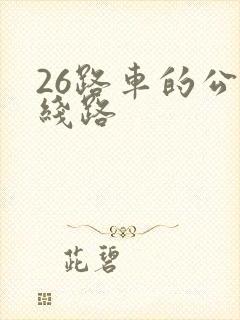 26路車的公
綫路
茈碧